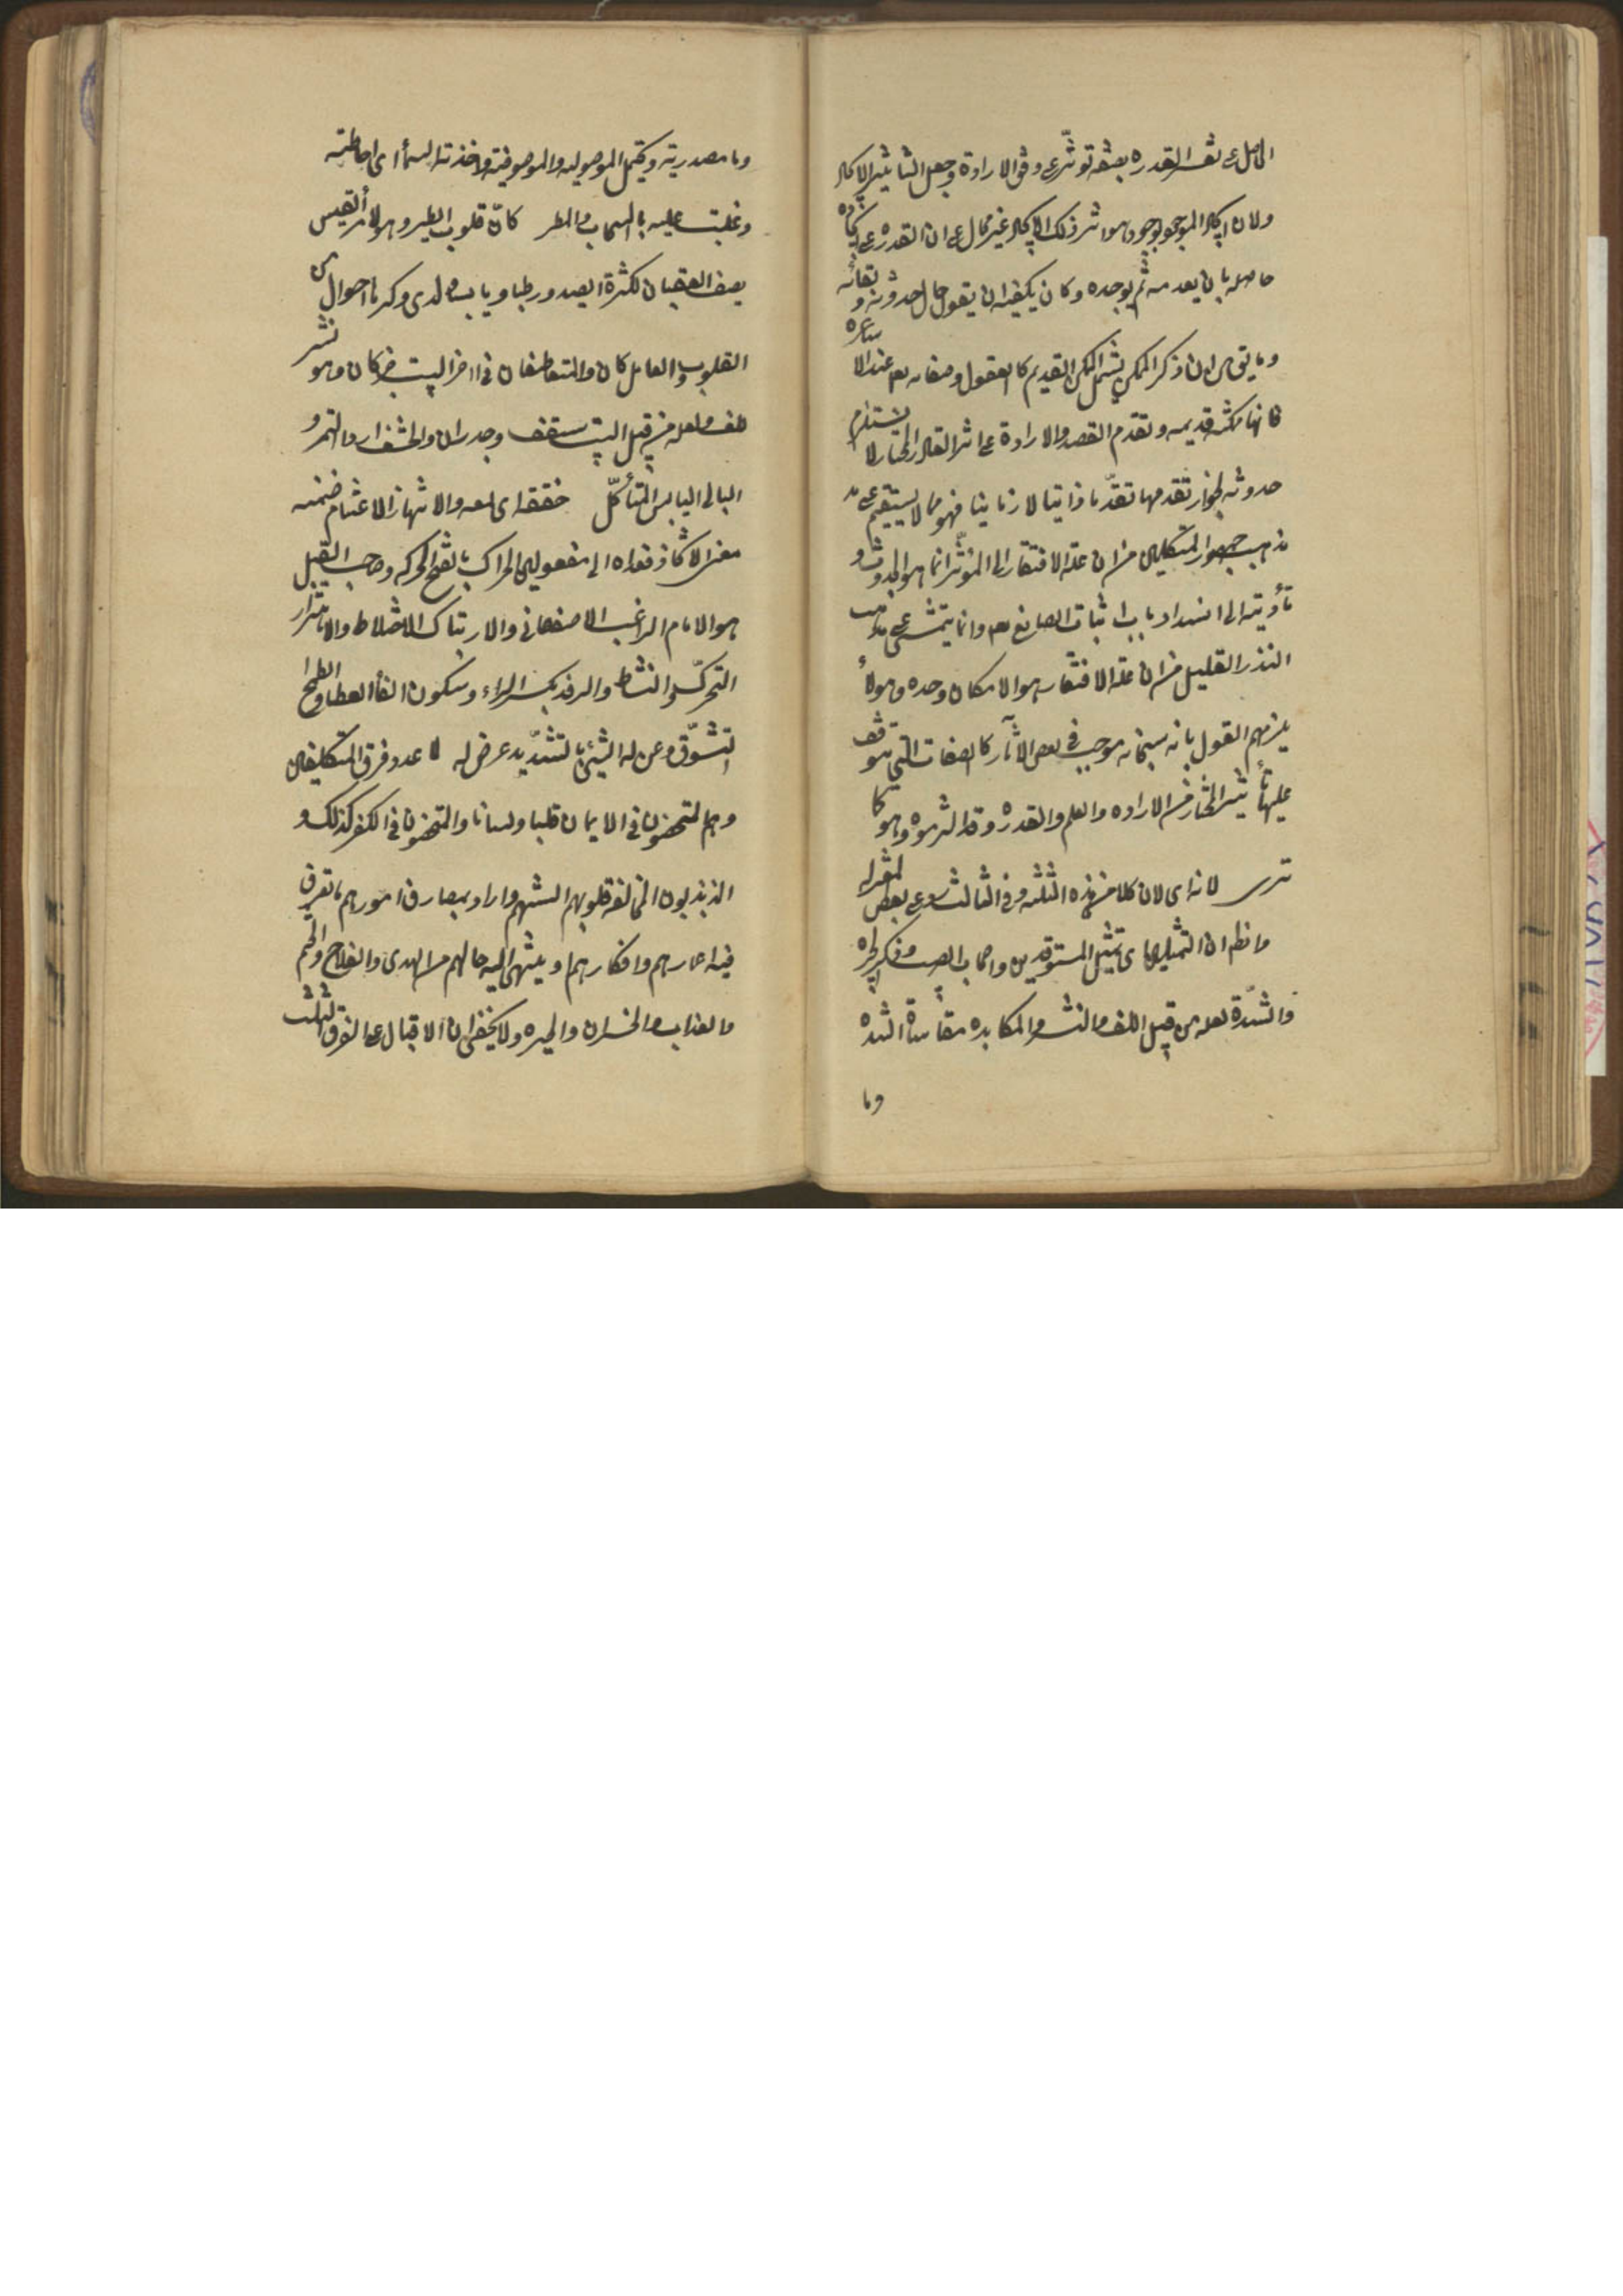 الحاصل على تفسير القدرة بصفة تؤثر على وفق الارادة وجعل التأثير الايجاد
ولان ايجاد الموجود بوجود هو اثر ذلك الايجاد غير محال على ان القدرة على ايجاده
حاصله بان يعدمه ثم يوجده وكان يكفيه ان يقول حال حدوثه وبقائه
وما يق من ان ذكر الممكن يشمل الممكن القديم كالعقول وصفاته تعم عند الاشاعره
فانها ممكنه قديمه وتقدم القصد والارادة على اثر القادر المختار لا يستلزم
حدوثه لجواز تقدمها تقدّما ذاتيا لا زمانيا فهو مما لا يستقيم على
مذهب جمهور المتكلمين من ان علة الافتقار الى المؤثر انما هو الحدوث و
تأديته الى انسداد باب اثبات الصانع تعم وانما يتمشى على مذهب
النذر القليل من ان علة الافتقار هو الامكان وحده وهؤلاء
يلزمهم القول بانه سبحانه موجب في بعض الآثار كالصفات التي يتوقف
عليها تأثير المختار من الاراده والعلم والقدرة وقد التزموه وهو كما
ترى لانه اى لان كلا من هذه الثلثه وفي الثالث رد على بعض المعتزله
ما نظم ان التمثيلين اى تمثيل المستوقدين واصحاب الصيب وذكر الحيره
والشدّة لعله من قبيل اللف والنشر والمكابده مقاساة الشده
وما
وما مصدرية ويحتمل الموصوليه والموصوفية واخذته السماء اى احاطته
وغلبت عليه بالسحاب والمطر كانّ قلوب الطير وهو لامرئ القيس
يصف العقبان لكثرة الصيد ورطبا ويابسا ولدى وكرها احوال من
القلوب والعامل كان والمتعاطفان في اخر البيت خبر كان وهو نشر
لف ولعله من قبيل البيت سقف وجدران والحشف اردء التمر و
البالى اليابس المتأكّل خفقه اى لمعه والانتهاز الاغتنام ضمنه
معنى الاتخاذ فعداه الى مفعولين الحراك بالفتح الحركه وصاحب القيل
هو الامام الراغب الاصفهاني والارتباك الاختلاط والاهتزاز
التحرك والنشاط والرفد بكسر الراء وسكون الفاء العطا والطموح
التشوّق وعن له الشيئ بالتشديد عرض له لما عدد فرق المكلفين
وهم المتمحضون في الايمان قلبا ولسانا والمتمحضون في الكفر كذلك و
المذبذبون المخالفة قلوبهم السنتهم واراد بمصارف امورهم ما تعرف
فيه اعمارهم وافكارهم وينتهى اليه حالهم من الهدى والفلاح والختم
والعذاب والخسران والحيره ولا يخفى ان الاقبال على الفرق الثلث